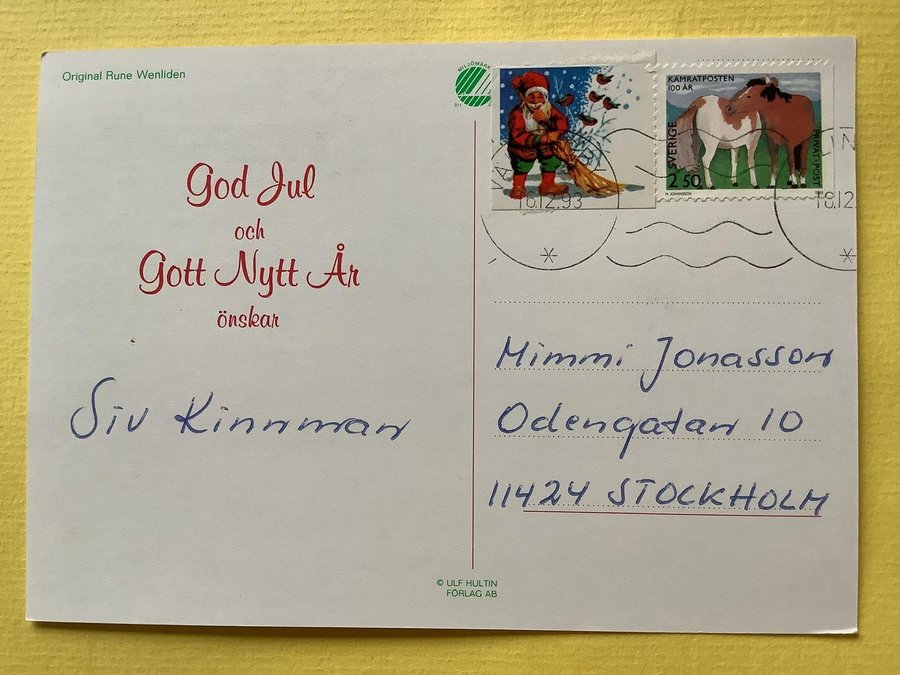 Original Rune Wenliden
MILJÖMÄRKT
God Jul
och
Gott Nytt År
önskar
Siv Kinnman
KAMRATPOSTEN
100 ÅR
SVERIGE
2.50
PRIVAT-POST
M. JOHANSSON
16.12.93
18.12
Mimmi Jonasson
Odengatan 10
11424 STOCKHOLM
© ULF HULTIN
FÖRLAG AB